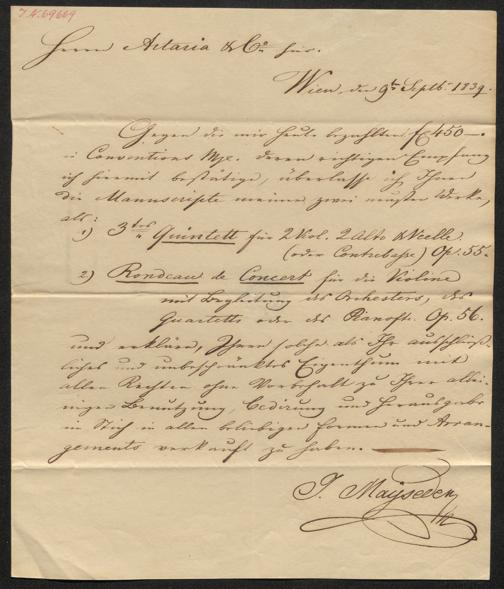 I.N. 69669
Herrn Artaria & Co. hier.
Wien, den 9t Septb. 1839.
Gegen die mir heute bezahlten f 450 —
in Conventions Mze. deren richtigen Empfang
ich hiermit bestätige, überlasse ich Ihnen
die Manuscripte meiner zwei neuesten Werke,
als:
1) 3tes Quintett für 2 Viol. 2 Alto & Vcelle
(oder Contrebasse) Op. 55.
2) Rondeau de Concert für die Violine
mit Begleitung des Orchesters, des
Quartetts oder des Pianoft. Op. 56.
und erkläre, Ihnen solche als Ihr ausschließ-
liches und unbeschränktes Eigenthum mit
allen Rechten ohne Vorbehalt zu Ihrer allei-
nigen Benutzung, Cedirung und Herausgabe
in Stich in allen beliebigen Formen und Arran-
gements verkauft zu haben.
J. Mayseder